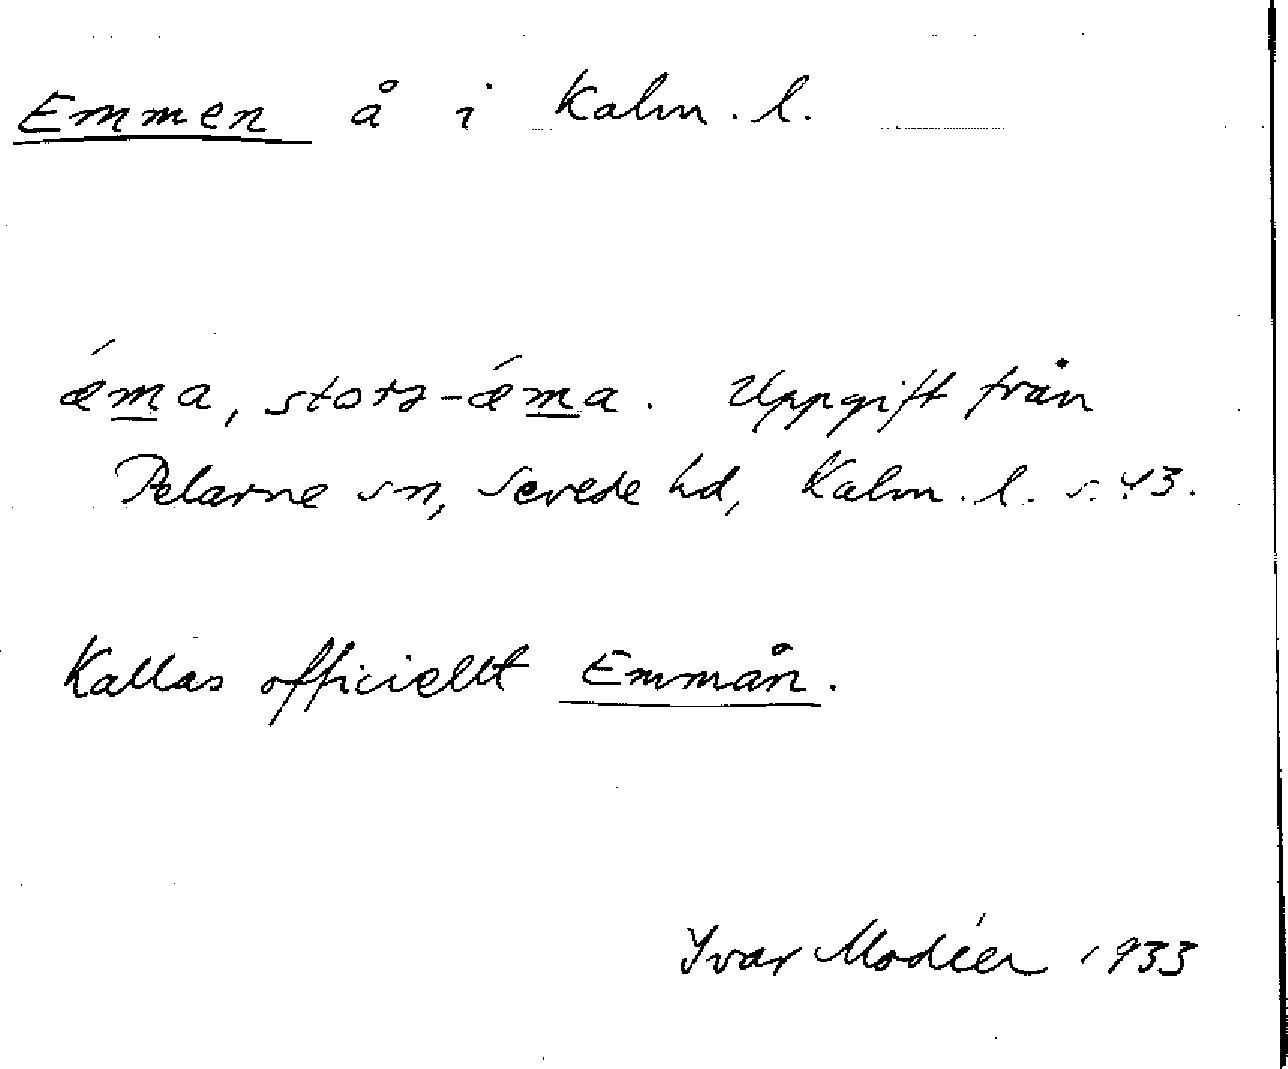 Emmen å i Kalm. l.
ǽma, stora-ǽma. Uppgift från
Pelarne sn, Sevede hd, Kalm. l. s. 43.
Kallas officiellt Emmån.
Yvar Modéer 1933